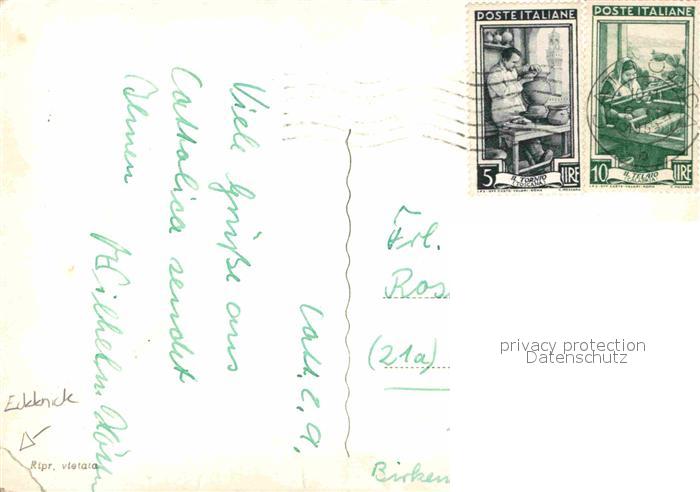 POSTE ITALIANE
5 LIRE
IL TORNIO
(TOSCANA)
POSTE ITALIANE
10 LIRE
IL TELAIO
(CALABRIA)
Viele Grüße aus
Cattolica sendet
Ihnen
Wilhelm
Frl.
Ros
(21a)
Birken
privacy protection
Datenschutz
Eckknick
Ripr. vietata